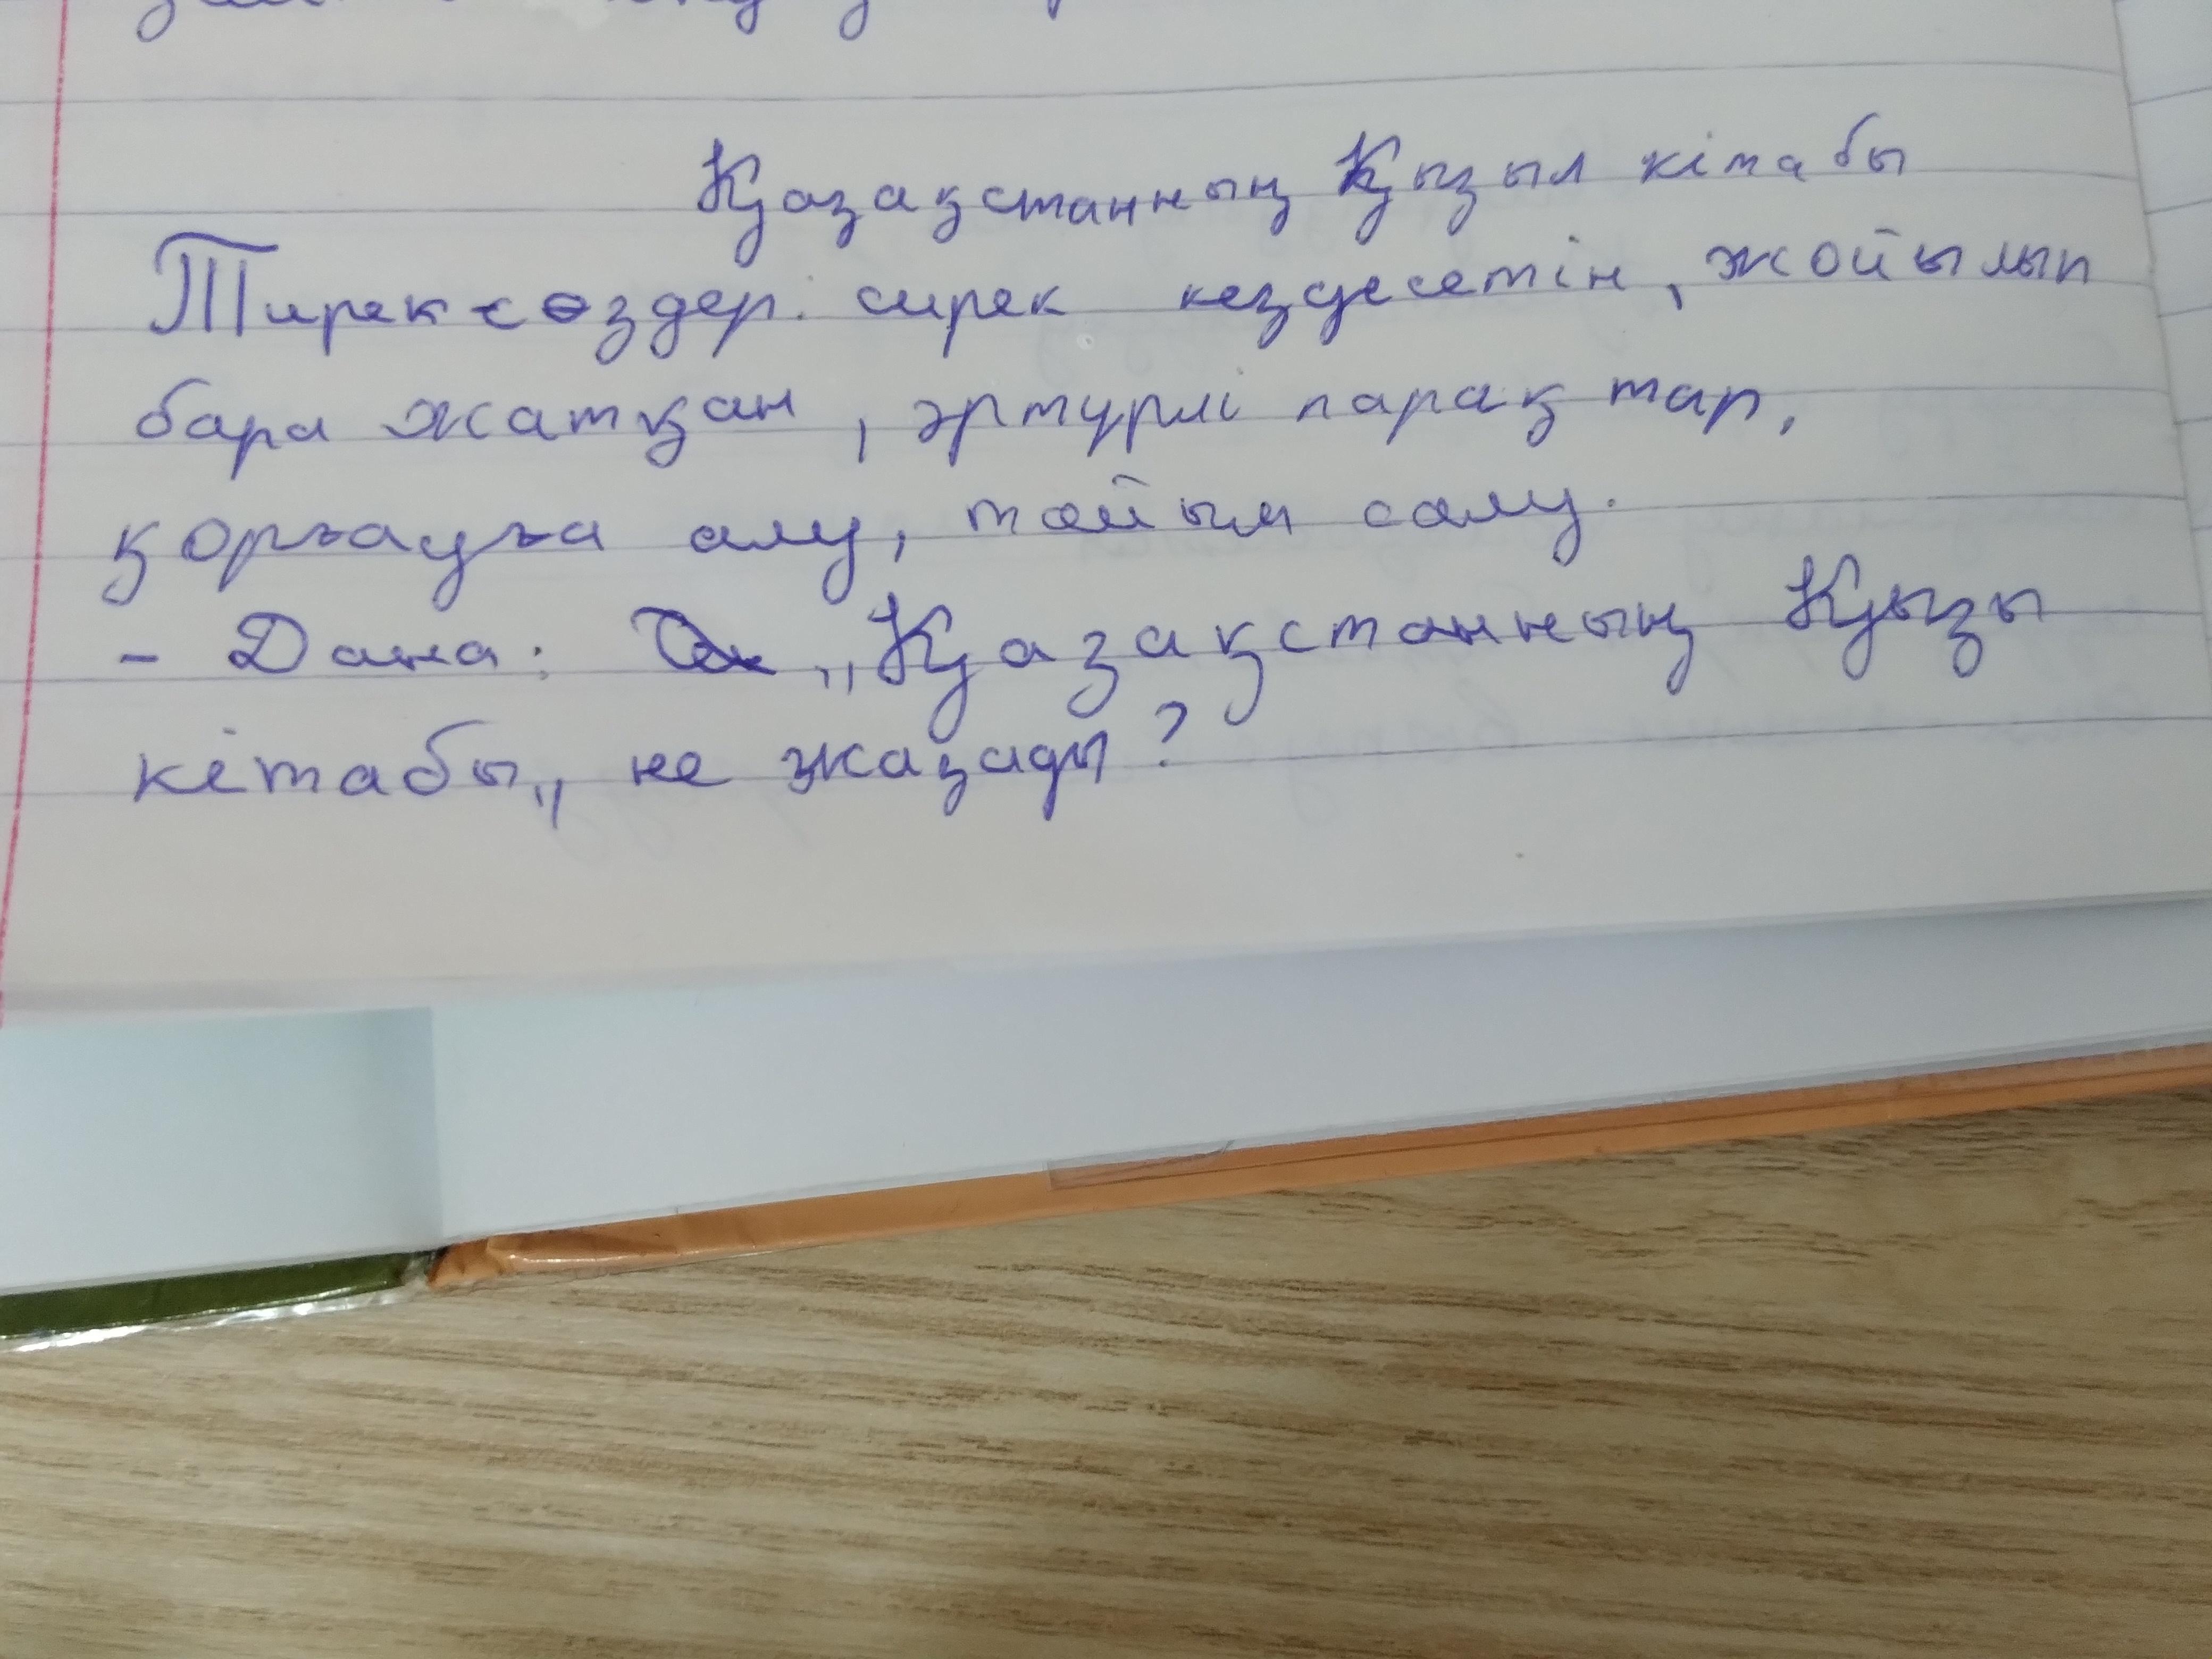 Қазақстанның Қызыл кітабы
Тирек сөздер: сирек кездесетін, жойылып
бара жатқан, әртүрлі парақтар,
қорғауға алу, тойым салу.
- Дана: „Қазақстанның Қызы
кітабы„ не жазады?